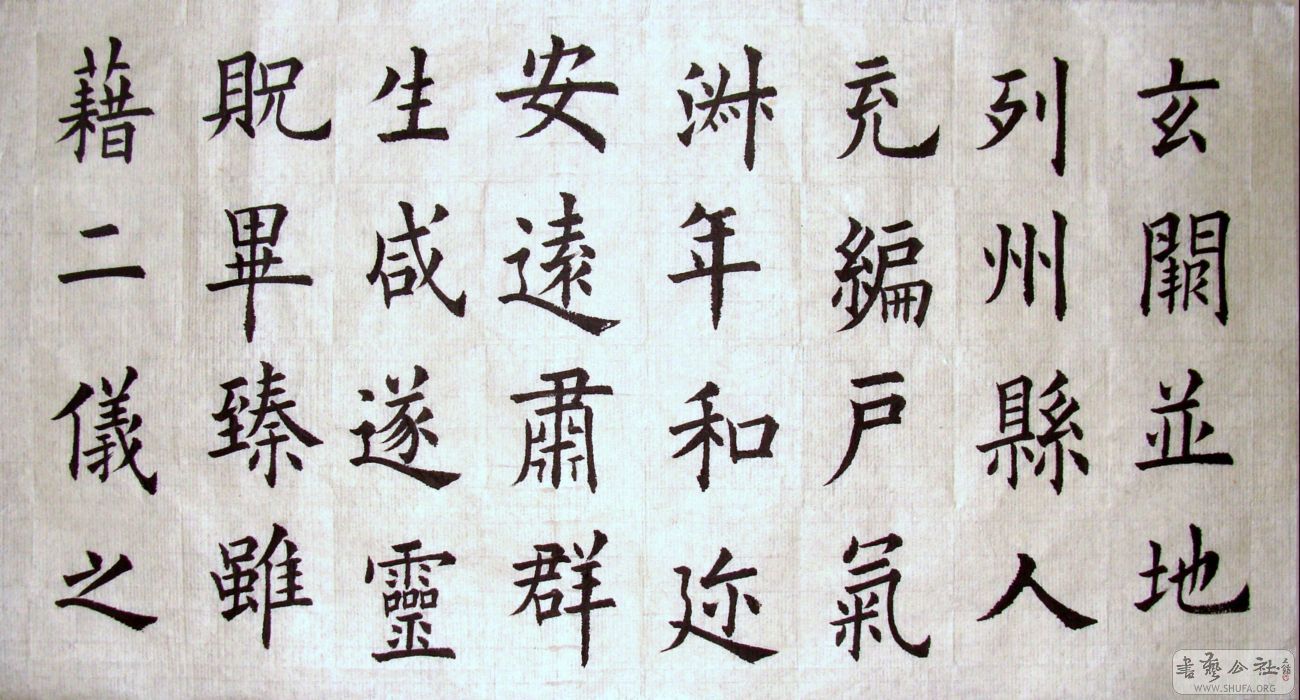 玄闕並地
列州縣人
充編戶氣
淑年和迩
安遠肅群
生咸遂靈
貺畢臻雖
藉二儀之
書藝公社
WWW.SHUFA.ORG